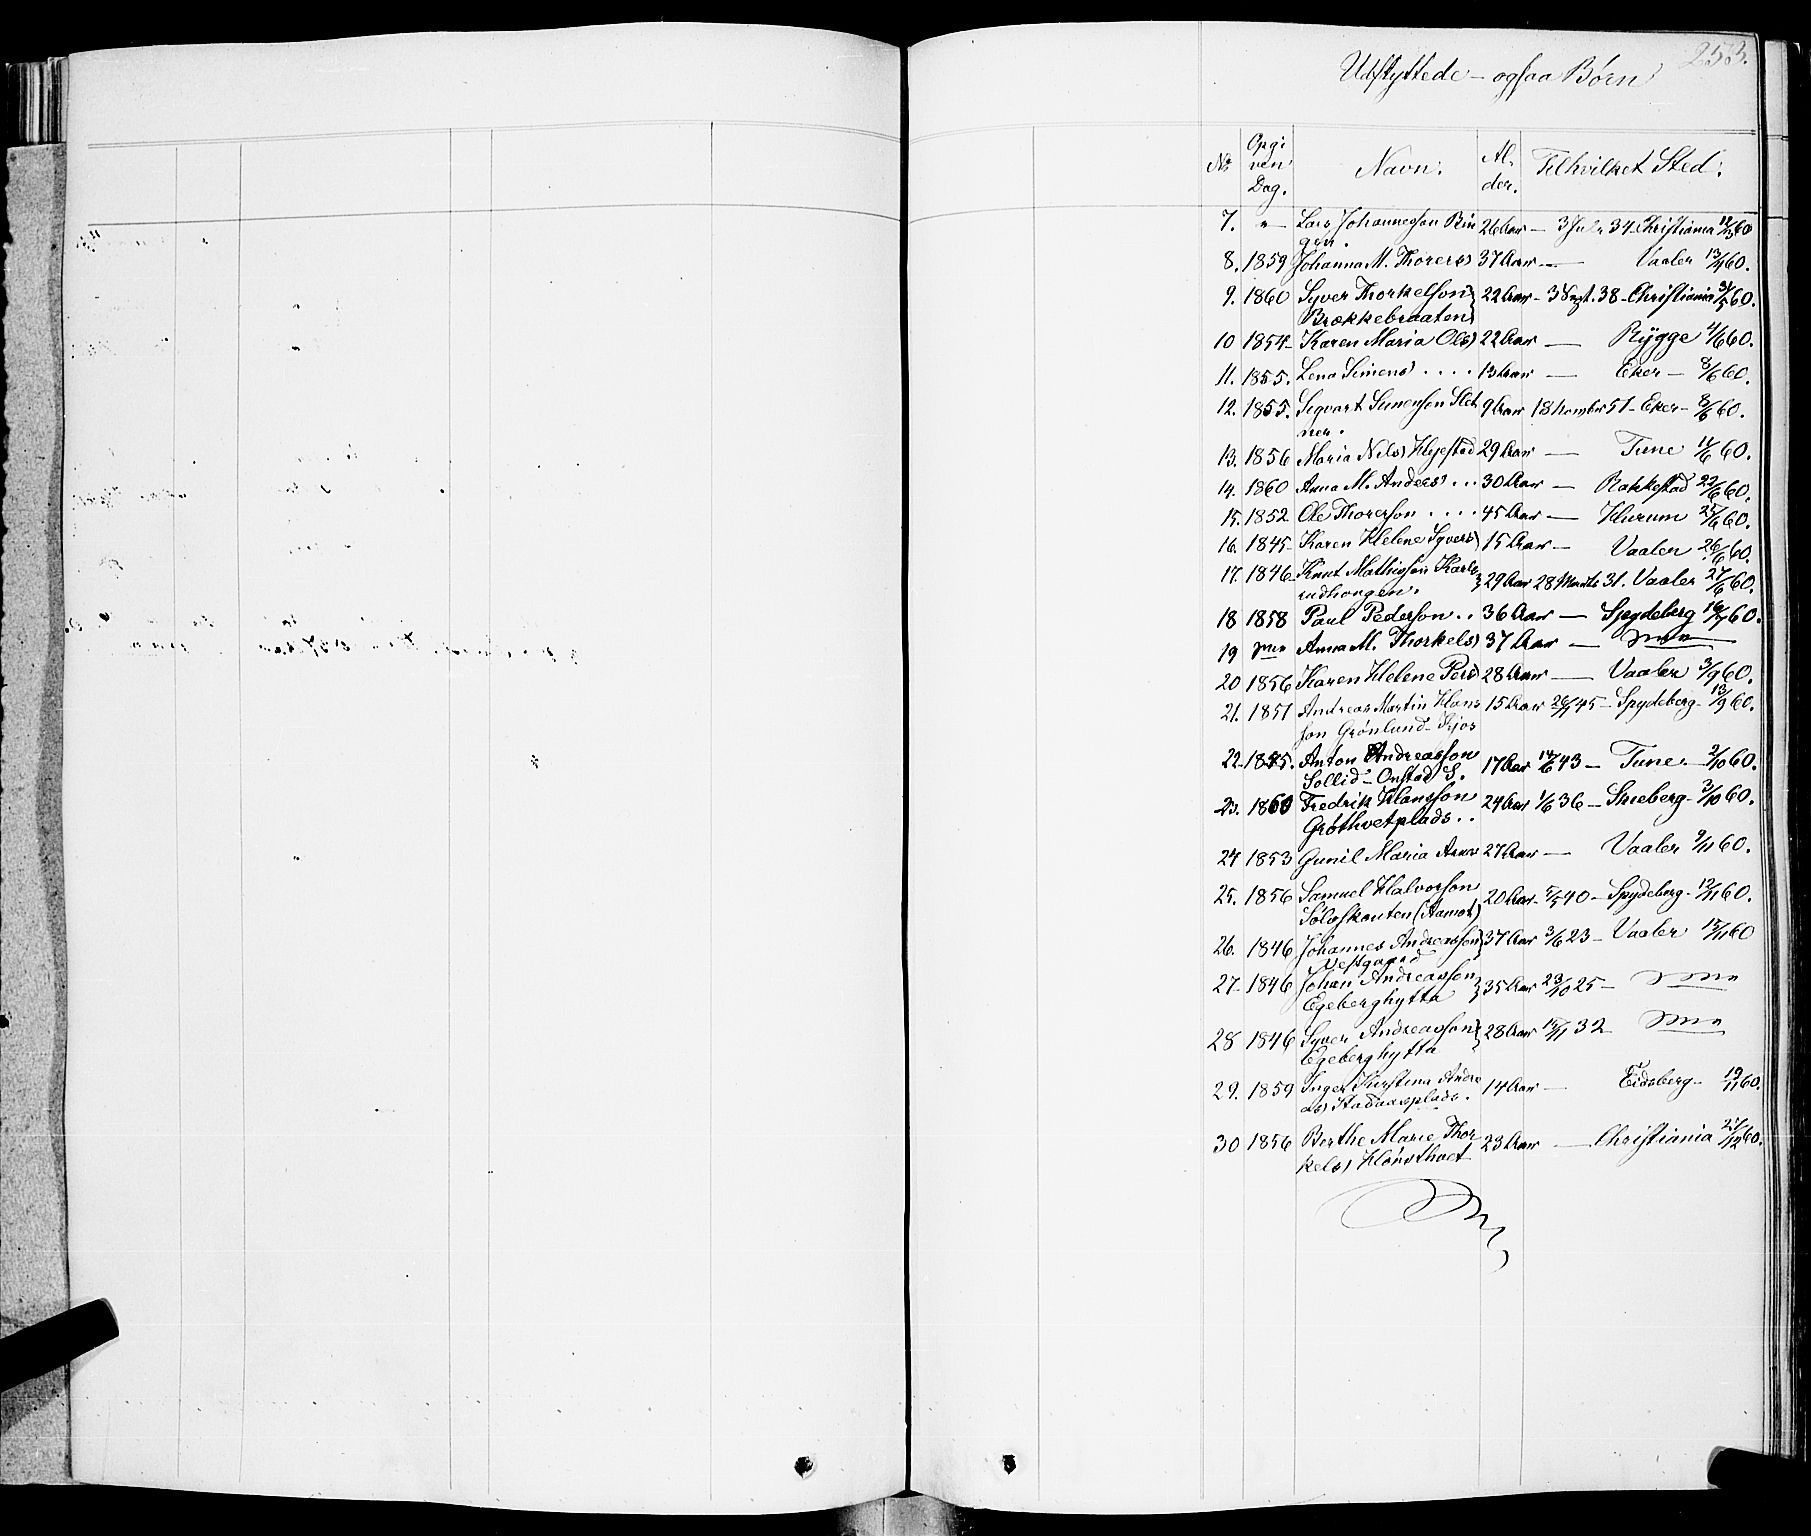 253.
Udflyttede – ogsaa Børn
No Opgi ven Dag. Navn: Al- der. Til hvilket Sted:
7. " Lars Johannesson Bin 26 Aar — 3 Jul. 34 Christiania 60
gen.
8. 1859 Johanna M. Thorers 37 Aar — Vaaler 13/4 60.
9. 1860 Syver Thorkelson 22 Aar – 3 Sept. 38 – Christiania 31/5 60.
Brækkebraaten
10 1854 Karen Maria Ols 22 Aar — Rygge 4/6 60.
11. 1855. Lena Simens . . . . 13 Aar — Eker – 8/6 60.
12. 1855. Sigvart Simenson Slet 9 Aar 18 November 51 – Eker – 8/6 60.
ner.
13. 1856 Maria Nils 29 Aar — Tune 11/6 60.
14. 1860 Anna M. Anders . . . 30 Aar — Rakkestad 22/6 60.
15. 1852. Ole Thorerson . . . . 45 Aar — Hurum 25/6 60.
16. 1845 Karen Helene Syvers 15 Aar — Vaaler 26/6 60.
17. 1846 Knut Mathisson Karls 29 Aar 28 Marts 31. Vaaler 27/6 60.
rudhougen.
18 1858 Paul Pederson . . 36 Aar — Spydeberg 16/7 60.
19 Anna M. Thorkels 37 Aar —
20 1856 Karen Helene Pers 28 Aar — Vaaler 3/9 60.
21. 1851 Andreas Martin Hans 15 Aar 26/1 45 – Spydeberg – 13/9 60.
son Grønlund – Kjos
22. 1855. Anton Andreasson 17 Aar 14/6 43 – Tune – 2/10 60.
Sollid – Onstad S.
23. 1860 Fredrik Hansson 24 Aar 1/6 36 – Skieberg – 3/10 60.
Grøthvetplads . .
24 1853 Gunil Maria 27 Aar — Vaaler 9/11 60.
25. 1856 Samuel Halvorson 20 Aar – 5/5 40 – Spydeberg – 12/11 60.
Sølvskauten (Aamot)
26. 1846 Johannes Andreasson 37 Aar 3/6 23 – Vaaler 15/11 60
Vestgaard
27. 1846 Johan Andreasson 35 Aar 23/10 25 –
Egeberghytta
28 1846 Syver Andreasson 28 Aar 15/11 32
Egeberghytta
29. 1859 Inger Kirstina Andre 14 Aar — Eidsberg – 19/11 60.
as Stadaasplads.
30 1856 Berthe Marie Thor 23 Aar — Christiania 60.
kels Hønsthvet